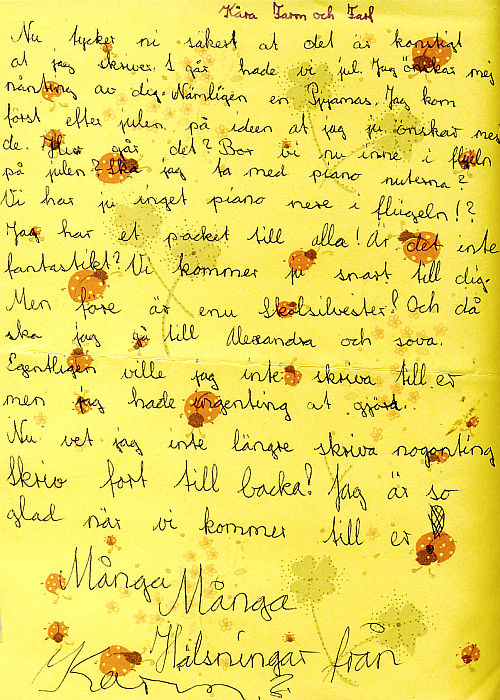 Kära Farm och Farf
Nu tycker ni säkert at det är konstigt
at jag skriver. I går hade vi jul. Jag önskar mej
nånting av dig. Nämligen en Pyjamas. Jag kom
först efter julen på ideen at jag ju önskar mej
de. Hur går det? Bor vi nu inne i flügeln
på julen? Ska jag ta med piano nuterna?
Vi har ju inget piano nere i flügeln!?
Jag har et packet till alla! Är det inte
fantastikt? Vi kommer ju snart till dig.
Men före är enu Skolsilvester! Och då
ska jag gå till Alexandra och sova.
Egentligen ville jag inte skriva till er
men jag hade ingenting at gjöra.
Nu vet jag inte längre skriva nogonting
Skriv fort till backa! Jag är so
glad när vi kommer till er
Många Många
Hälsningar från